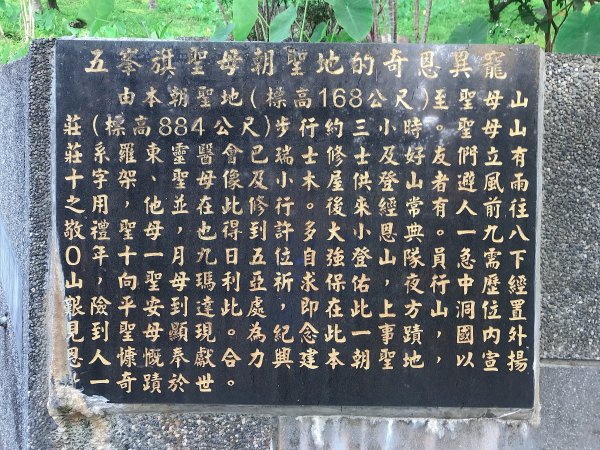 五峯旗聖母朝聖地的奇恩異寵
由本朝聖地(標高168公尺)至聖母山
莊(標高884公尺)步行約三小時。聖母山
莊系羅東靈醫會已瑞士修士及好友們立有
十字架,聖母像及小木屋供登山者避風雨
之用,他並在此修行。後來經常有人前往
敬禮聖母,也得到許多大小恩典。一九八
O年十一月九日五位自強登山隊員急需下
山,向聖母瑪利亞祈求保佑,夜行中歷經
艱險平安到達此處,即在此上方山洞位置
見到聖母顯現。為紀念此一事蹟,國內外
恩人慷慨奉獻合力興建本朝聖地,以宣揚
此一奇蹟於世。